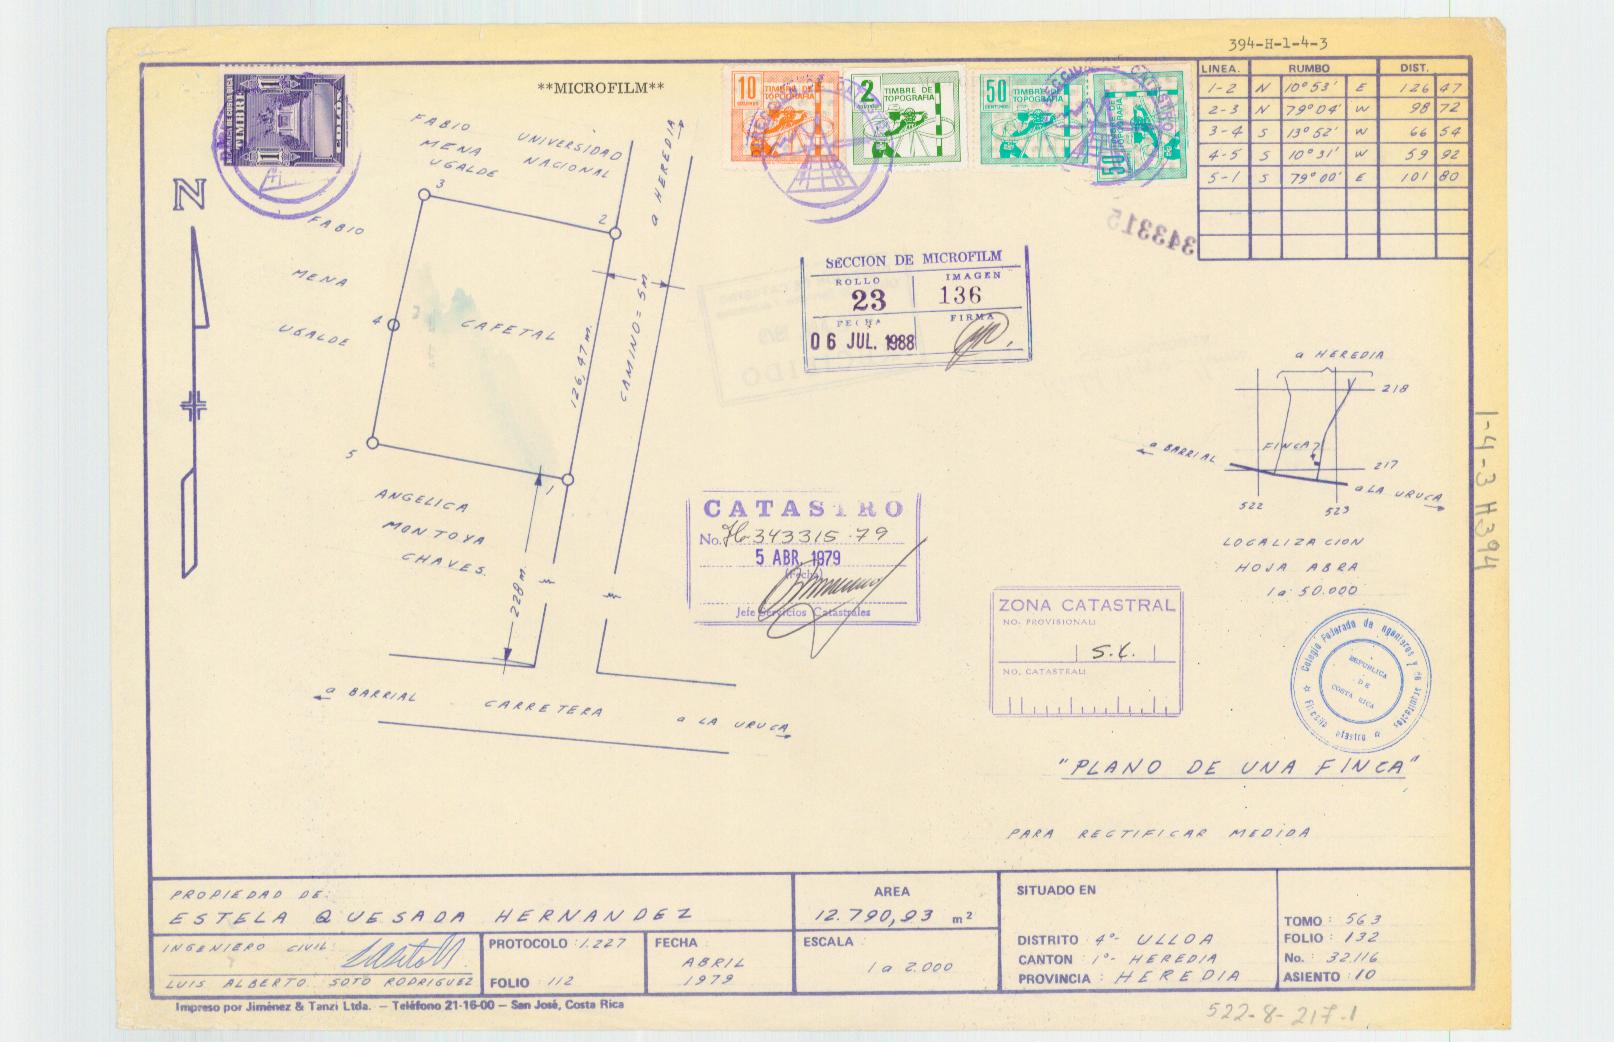 394-H-1-4-3
**MICROFILM**
TIMBRE
10 TIMBRE DE TOPOGRAFIA
2 TIMBRE DE TOPOGRAFIA
50 CENTIMOS TIMBRE DE TOPOGRAFIA
50 TIMBRE DE TOPOGRAFIA
LINEA. RUMBO DIST.
1-2 N 10°53' E 126 47
2-3 N 79°04' W 98 72
3-4 S 13°52' W 66 54
4-5 S 10°31' W 59 92
5-1 S 79°00' E 101 80
343315
N
FABIO MENA UGALDE
UNIVERSIDAD NACIONAL
a HEREDIA
FABIO
MENA
UGALDE
3
2
4
5
1
CAFETAL
126,47 m.
CAMINO = 5 m
ANGELICA
MONTOYA
CHAVES.
228 m.
a BARRIAL
CARRETERA
a LA URUCA
SECCION DE MICROFILM
ROLLO IMAGEN
23 136
FECHA FIRMA
06 JUL. 1988
CATASTRO
No. H-343315-79
5 ABR. 1979
(Fecha)
Jefe Servicios Catastrales
a HEREDIA
218
a BARRIAL
FINCA
217
a LA URUCA
522 523
LOCALIZACION
HOJA ABRA
1 a 50.000
1-4-3 H394
ZONA CATASTRAL
NO. PROVISIONAL
S.C.
NO. CATASTRAL
Colegio Federado de Ingenieros y de Arquitectos
REPUBLICA
DE
COSTA RICA
"PLANO DE UNA FINCA"
PARA RECTIFICAR MEDIDA
PROPIEDAD DE:
ESTELA QUESADA HERNANDEZ
AREA
12.790,93 m²
INGENIERO CIVIL:
LUIS ALBERTO SOTO RODRIGUEZ
PROTOCOLO : 1.227
FOLIO : 112
FECHA :
ABRIL
1979
ESCALA :
1 a 2.000
SITUADO EN
DISTRITO : 4°- ULLOA
CANTON : 1°- HEREDIA
PROVINCIA : HEREDIA
TOMO : 563
FOLIO : 132
No. : 32.116
ASIENTO : 10
Impreso por Jiménez & Tanzi Ltda. – Teléfono 21-16-00 – San José, Costa Rica
522-8-217-1